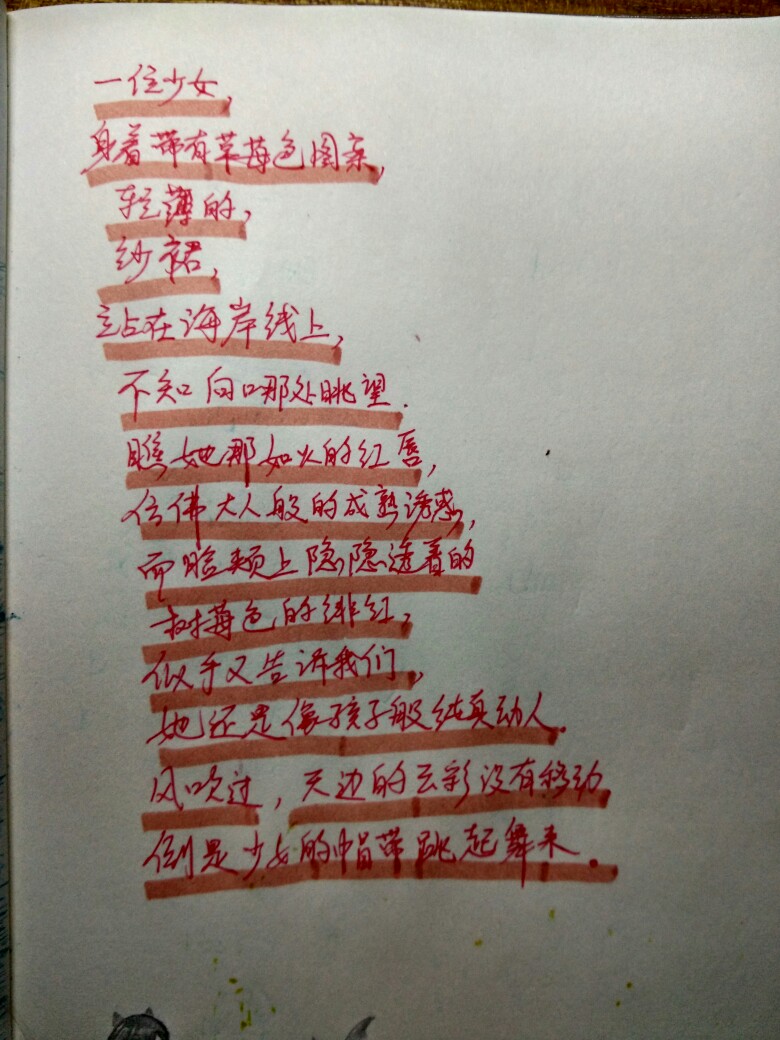 一位少女，
身着带有草莓色图案，
轻薄的，
纱裙，
站在海岸线上，
不知向哪处眺望.
瞧她那如火的红唇，
仿佛大人般的成熟诱惑，
而脸颊上隐隐透着的
树莓色的绯红，
似乎又告诉我们，
她还是像孩子般纯真动人.
风吹过，天边的云彩没有移动，
倒是少女的帽带跳起舞来。